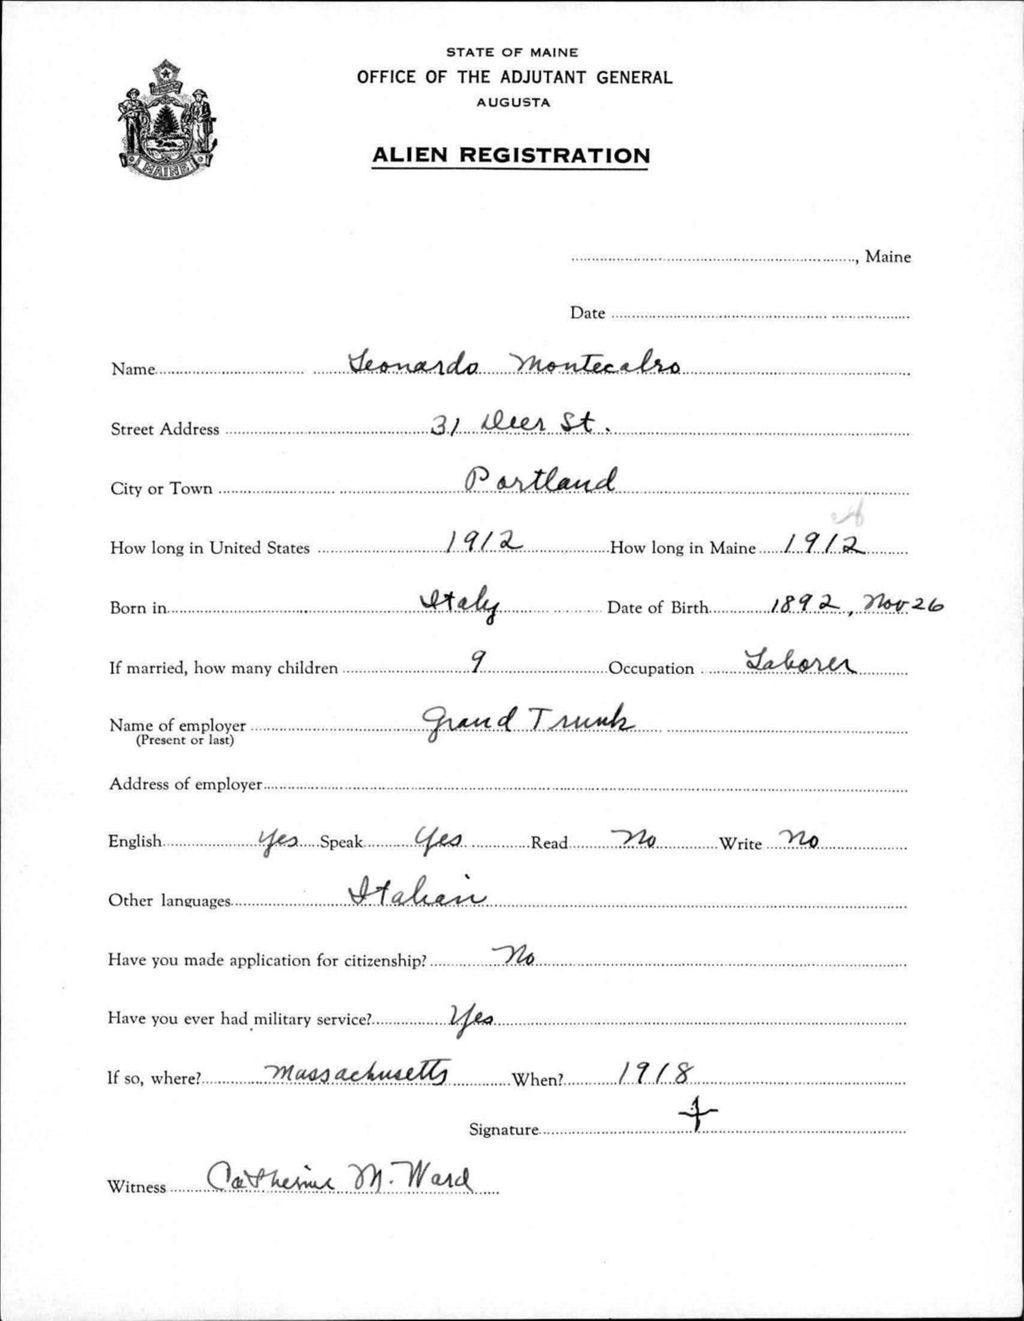 STATE OF MAINE
OFFICE OF THE ADJUTANT GENERAL
AUGUSTA
ALIEN REGISTRATION
MAINE
, Maine
Date
Name Leonardo Montecalvo
Street Address 31 Deer St.
City or Town Portland
How long in United States 1912 How long in Maine 1912
Born in Italy Date of Birth 1892, Nov 26
If married, how many children 9 Occupation Laborer
Name of employer Grand Trunk
(Present or last)
Address of employer
English Yes Speak Yes Read No Write No
Other languages Italian
Have you made application for citizenship? No
Have you ever had military service? Yes
If so, where? Massachusetts When? 1918
Signature
Witness Catherine M. Ward